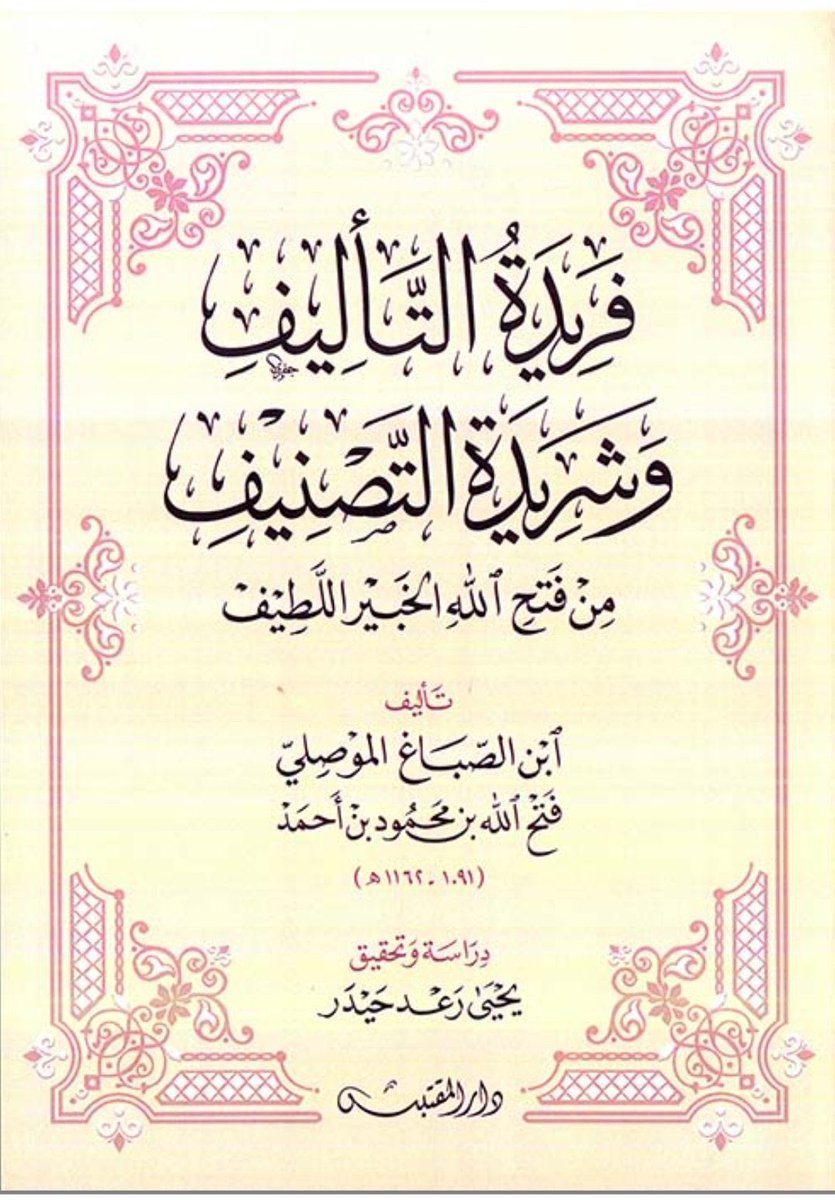 فَرِيدَةُ التَّأْلِيفِ
وَشَرِيدَةُ التَّصْنِيفِ
مِنْ فَتَحِ ٱللهِ الخَبِيْرِ اللَّطِيْف
تَأليف
ٱبْن الصَّبَاغ المَوْصِليّ
فَتْحُ ٱلله بن مَحمُود بن أَحمَدْ
(١٠٩١ - ١١٦٢ه)
دِرَاسَة وَتَحقيق
يَحْيَىٰ رَعْد حَيْدَر
دار المقتبس